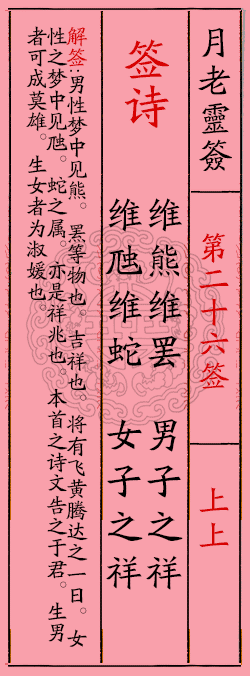 月老靈簽
第二十六签
上上
签诗
维熊维罢 男子之祥
维虺维蛇 女子之祥
解签:男性梦中见熊。罴等物也。吉祥也。将有飞黄腾达之一日。女
性之梦中见虺。蛇之属。亦是祥兆也。本首之诗文告之于君。生男
者可成莫雄。生女者为淑媛也。